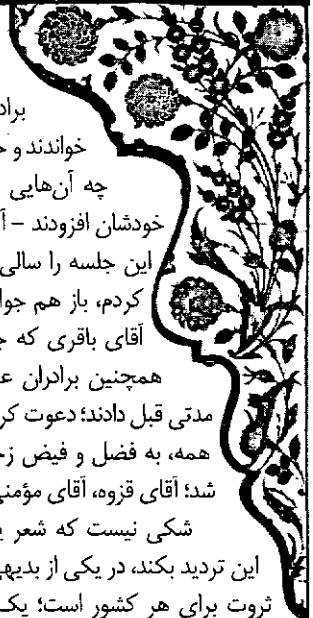 براد
خواندند و
چه آن‌هایی
خودشان افزودند – آ
این جلسه را سالی
کردم، باز هم جوا
آقای باقری که ج
همچنین برادران ع
مدتی قبل دادند؛ دعوت کر
همه، به فضل و فیض
شد؛ آقای قزوه، آقای مؤمنی
شکی نیست که شعر ی
این تردید بکند، در یکی از بدیهی
ثروت برای هر کشور است؛ یک